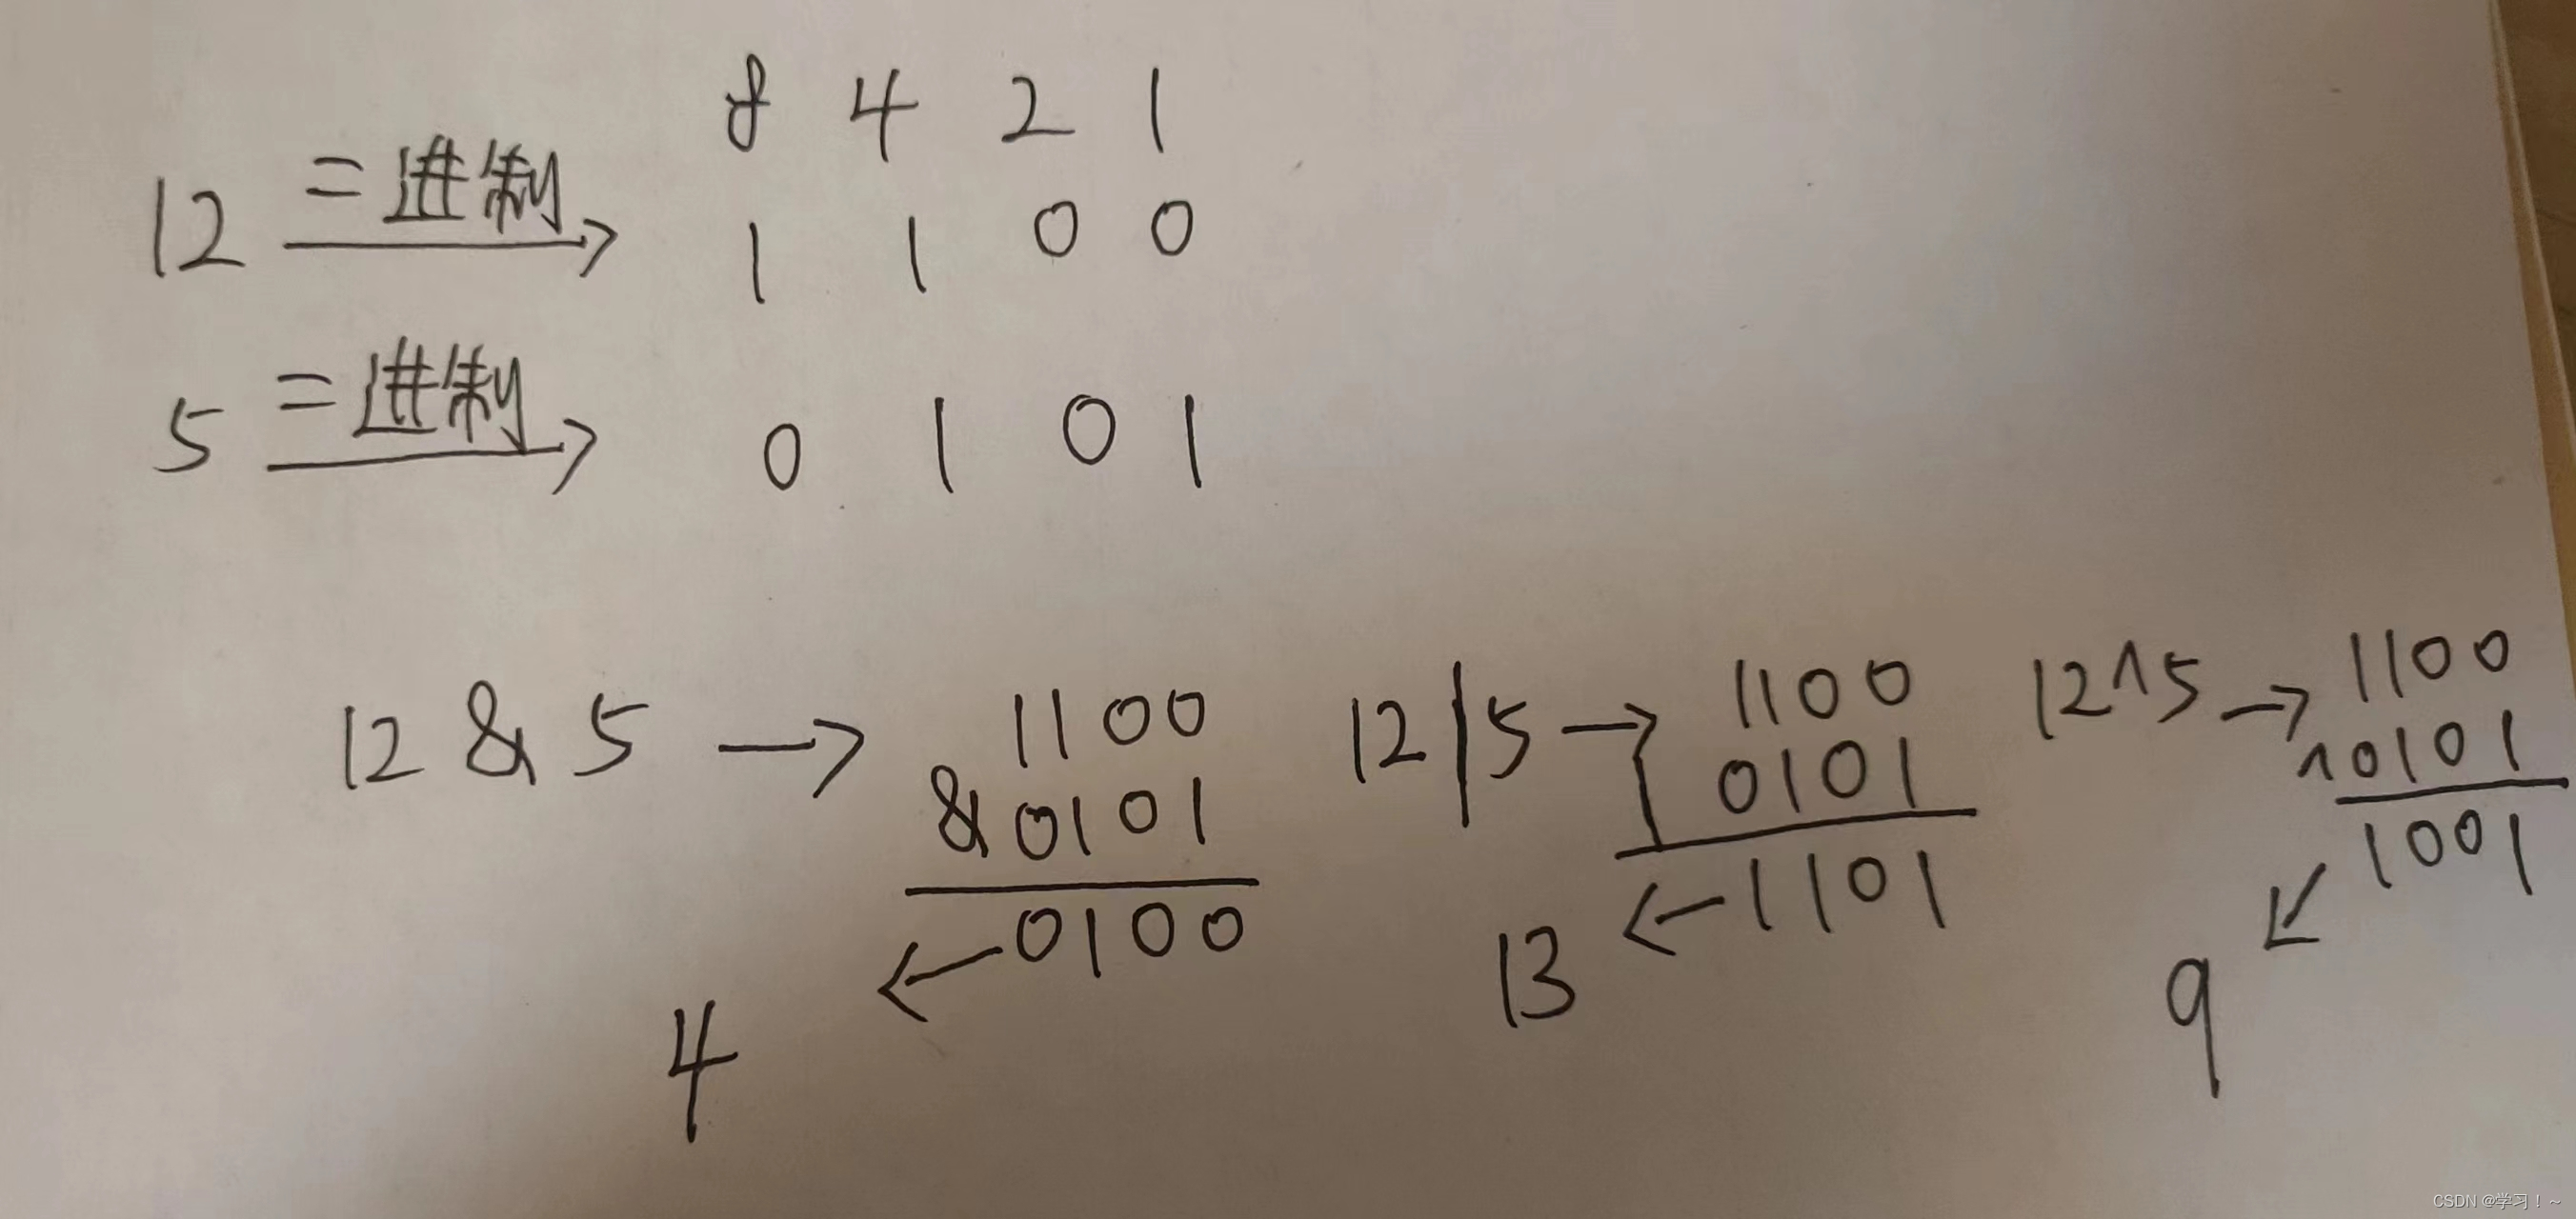 8 4 2 1
12 二进制→ 1 1 0 0
5 二进制→ 0 1 0 1
12 & 5 → 1100
& 0101
0100
← 4
12 | 5 → 1100
| 0101
1101
← 13
12 ^ 5 → 1100
^ 0101
1001
↙ 9
CSDN @学习！~